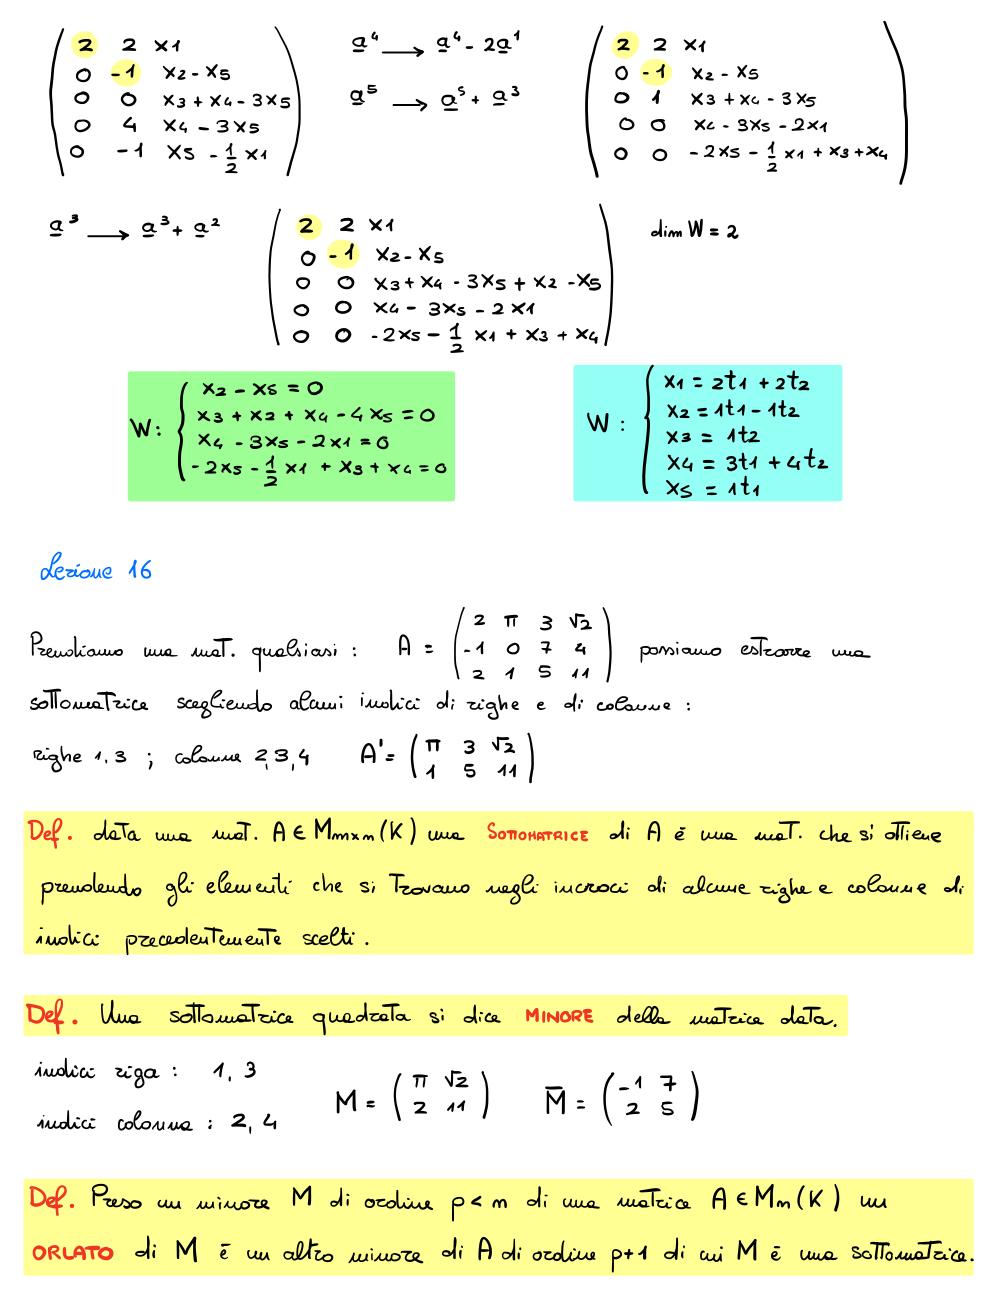 2 2 x1
0 -1 x2 - x5
0 0 x3 + x4 - 3x5
0 4 x4 - 3x5
0 -1 x5 - 1/2 x1
a⁴ → a⁴ - 2a¹
a⁵ → a⁵ + a³
2 2 x1
0 -1 x2 - x5
0 1 x3 + x4 - 3x5
0 0 x4 - 3x5 - 2x1
0 0 -2x5 - 1/2 x1 + x3 + x4
a³ → a³ + a²
2 2 x1
0 -1 x2 - x5
0 0 x3 + x4 - 3x5 + x2 - x5
0 0 x4 - 3x5 - 2x1
0 0 -2x5 - 1/2 x1 + x3 + x4
dim W = 2
W: { x2 - x5 = 0
x3 + x2 + x4 - 4x5 = 0
x4 - 3x5 - 2x1 = 0
-2x5 - 1/2 x1 + x3 + x4 = 0
W: { x1 = 2t1 + 2t2
x2 = 1t1 - 1t2
x3 = 1t2
x4 = 3t1 + 4t2
x5 = 1t1
Lezione 16
Prendiamo una mat. qualsiasi : A = ( 2 π 3 √2
-1 0 7 4
2 1 5 11 ) possiamo estrarre una
sottomatrice scegliendo alcuni indici di righe e di colonne :
righe 1,3 ; colonne 2,3,4 A' = ( π 3 √2
1 5 11 )
Def. data una mat. A ∈ Mmxn(K) una SOTTOMATRICE di A è una mat. che si ottiene
prendendo gli elementi che si trovano negli incroci di alcune righe e colonne di
indici precedentemente scelti.
Def. Una sottomatrice quadrata si dice MINORE della matrice data.
indici riga : 1, 3
indici colonna : 2, 4
M = ( π √2
2 11 )
M̅ = ( -1 7
2 5 )
Def. Preso un minore M di ordine p < n di una matrice A ∈ Mn(K) un
ORLATO di M è un altro minore di A di ordine p+1 di cui M è una sottomatrice.